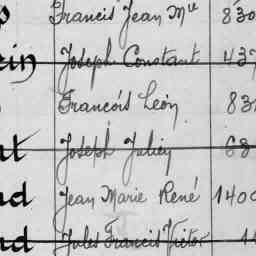 Francis Jean Mie 830
ein Joseph Constant 437
François Léon 83
at Joseph Julien 68
nd Jean Marie René 1400
nd Jules Francis Victor